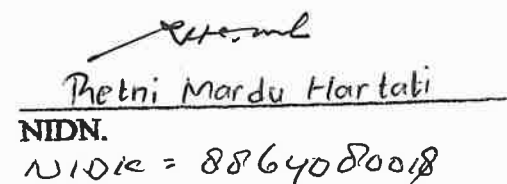 Retni Mardu Hartati
NIDN.
NIDK = 8864080018